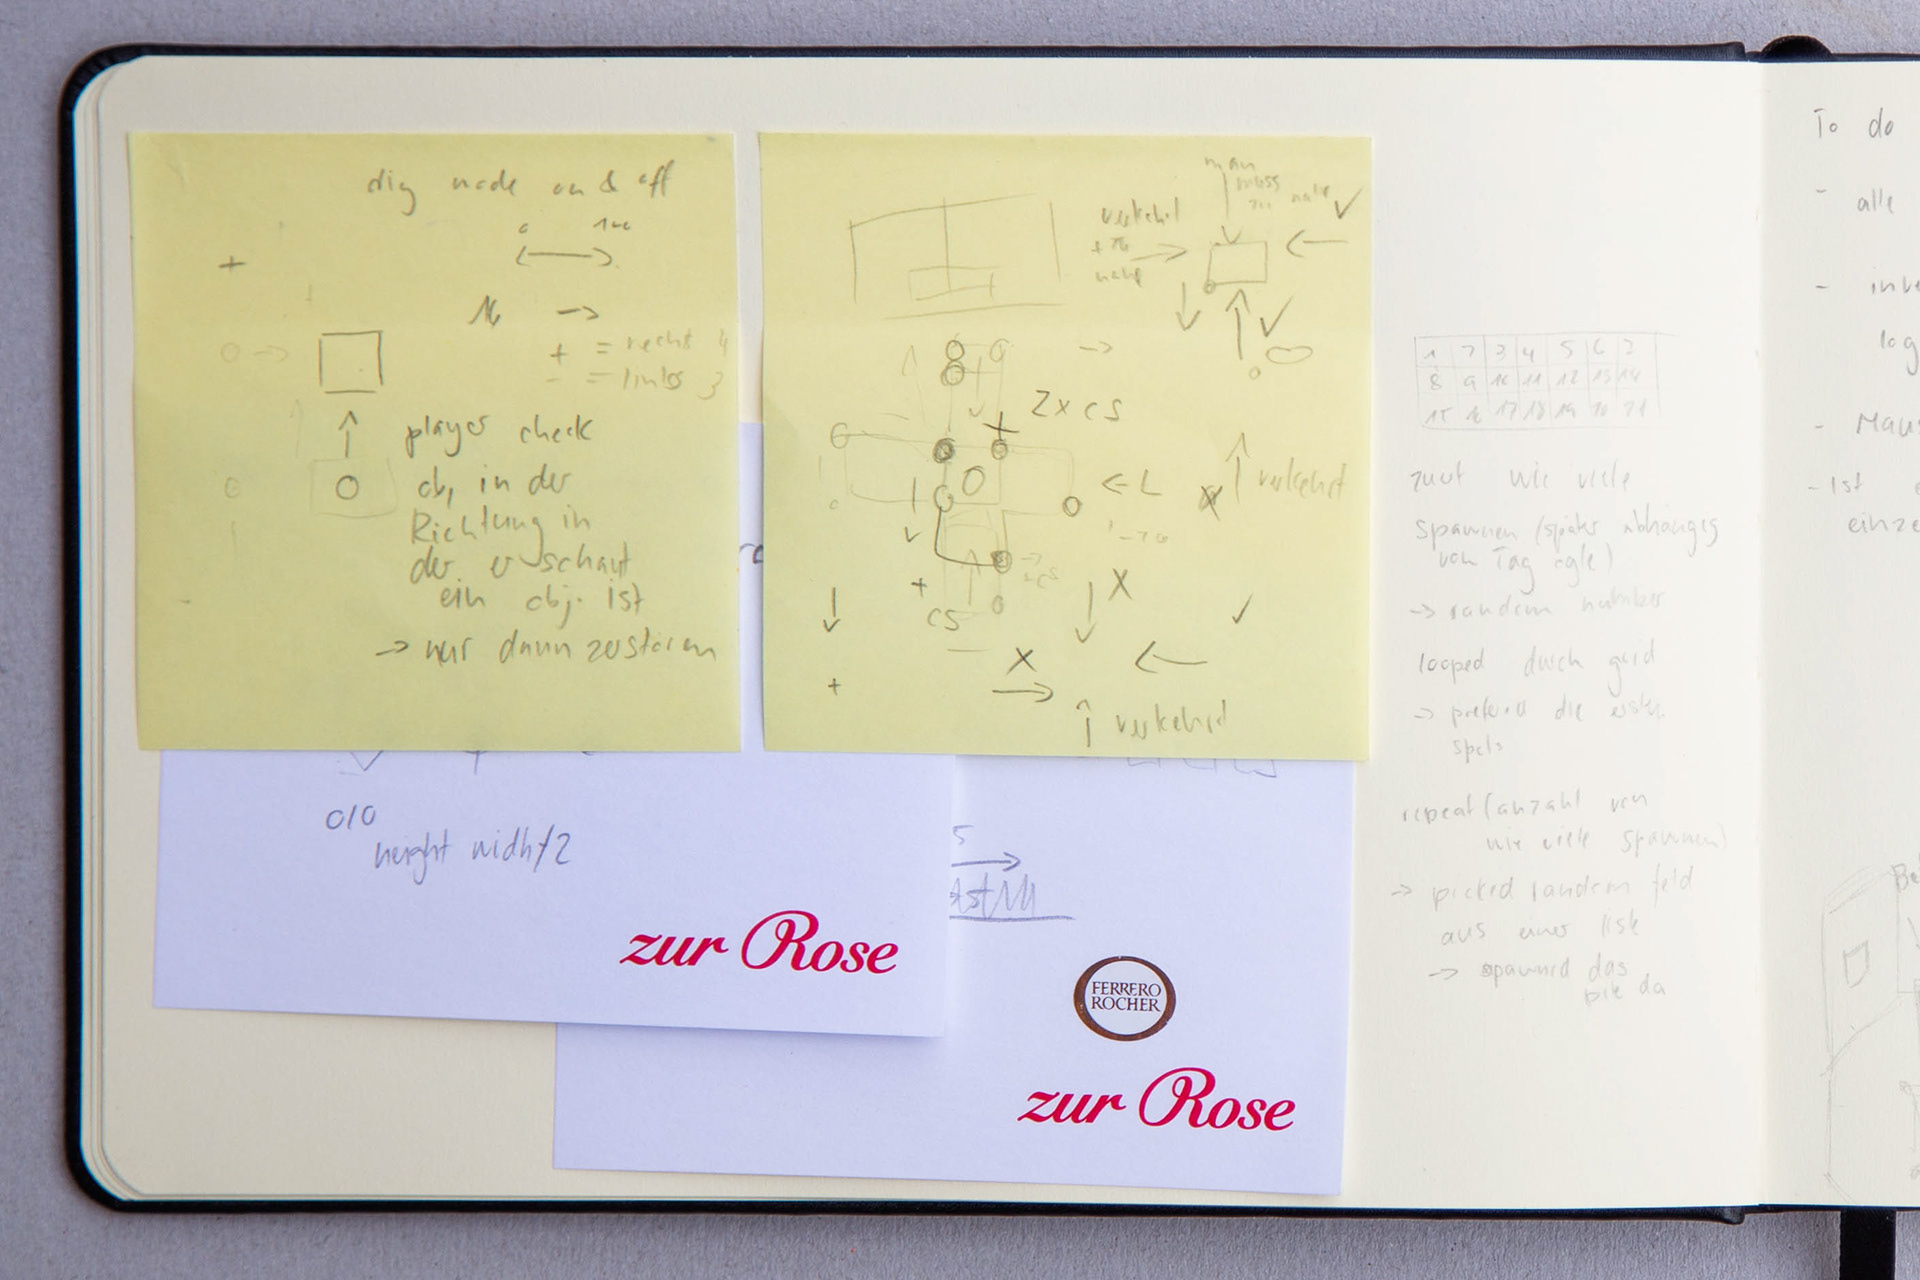 dig mode on & off
0 100
+
16 →
+ = rechts 4
- = links 3
player check
ob, in der
Richtung in
der er schaut
ein obj. ist
→ nur dann zerstören
man
muss
nahe ✓
verkehrt
+ 16
nahe
✓
2x cs
← L
verkehrt
X
+
cs
X
✓
X
+
verkehrt
0/0
height width/2
zur Rose
5
FERRERO
ROCHER
zur Rose
1 2 3 4 5 6 7
8 9 10 11 12 13 14
15 16 17 18 19 20 21
wie viele
spawnen (später abhängig
von Tag
→ random number
looped durch grid
→ die
repeat (anzahl von
wie viele spawnen)
→ picked random feld
aus einer liste
→ spawned das
da
To do
- alle
-
log
- Maus
- Ist
einze